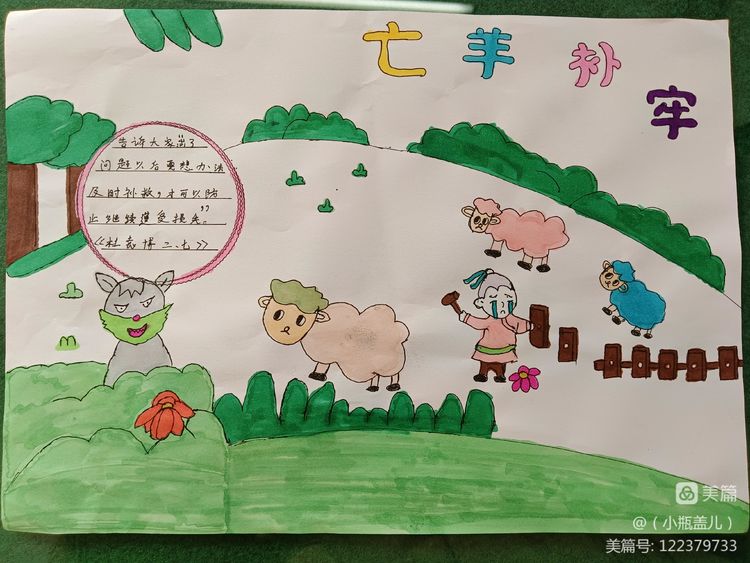 亡羊补牢
告诉大家出了
问题以后要想办法
及时补救,才可以防
止继续遭受损失。”
《杜奕博二、七》
美篇
@(小瓶盖儿)
美篇号: 122379733